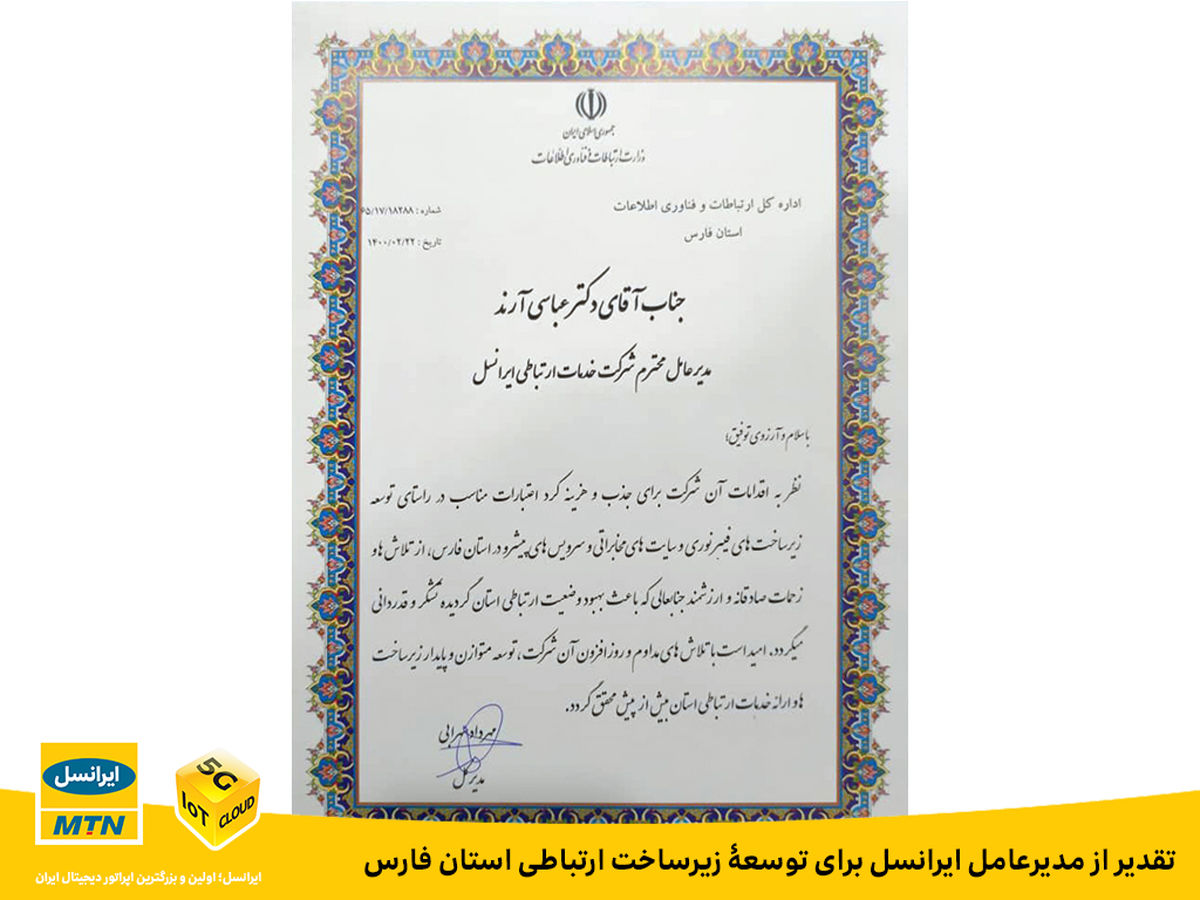 جمهوری اسلامی ایران
وزارت ارتباطات و فناوری اطلاعات
اداره کل ارتباطات و فناوری اطلاعات
استان فارس
شماره : ۶۵/۱۷/۱۸۲۸۸
تاریخ : ۱۴۰۰/۰۲/۲۲
جناب آقای دکتر عباسی آرند
مدیر عامل محترم شرکت خدمات ارتباطی ایرانسل
باسلام و آرزوی توفیق؛
نظر به اقدامات آن شرکت برای جذب و هزینه کرد اعتبارات مناسب در راستای توسعه
زیرساخت های فیبرنوری و سایت های مخابراتی و سرویس های پیشرو در استان فارس، از تلاش ها و
زحمات صادقانه و ارزشمند جنابعالی که باعث بهبود وضعیت ارتباطی استان گردیده تشکر و قدردانی
میگردد. امید است با تلاش های مداوم و روزافزون آن شرکت، توسعه متوازن و پایدار زیرساخت
ها و ارائه خدمات ارتباطی استان بیش از پیش محقق گردد.
مهرداد سهرابی
مدیر کل
ایرانسل
MTN
5G
IoT
CLOUD
تقدیر از مدیرعامل ایرانسل برای توسعهٔ زیرساخت ارتباطی استان فارس
ایرانسل؛ اولین و بزرگترین اپراتور دیجیتال ایران